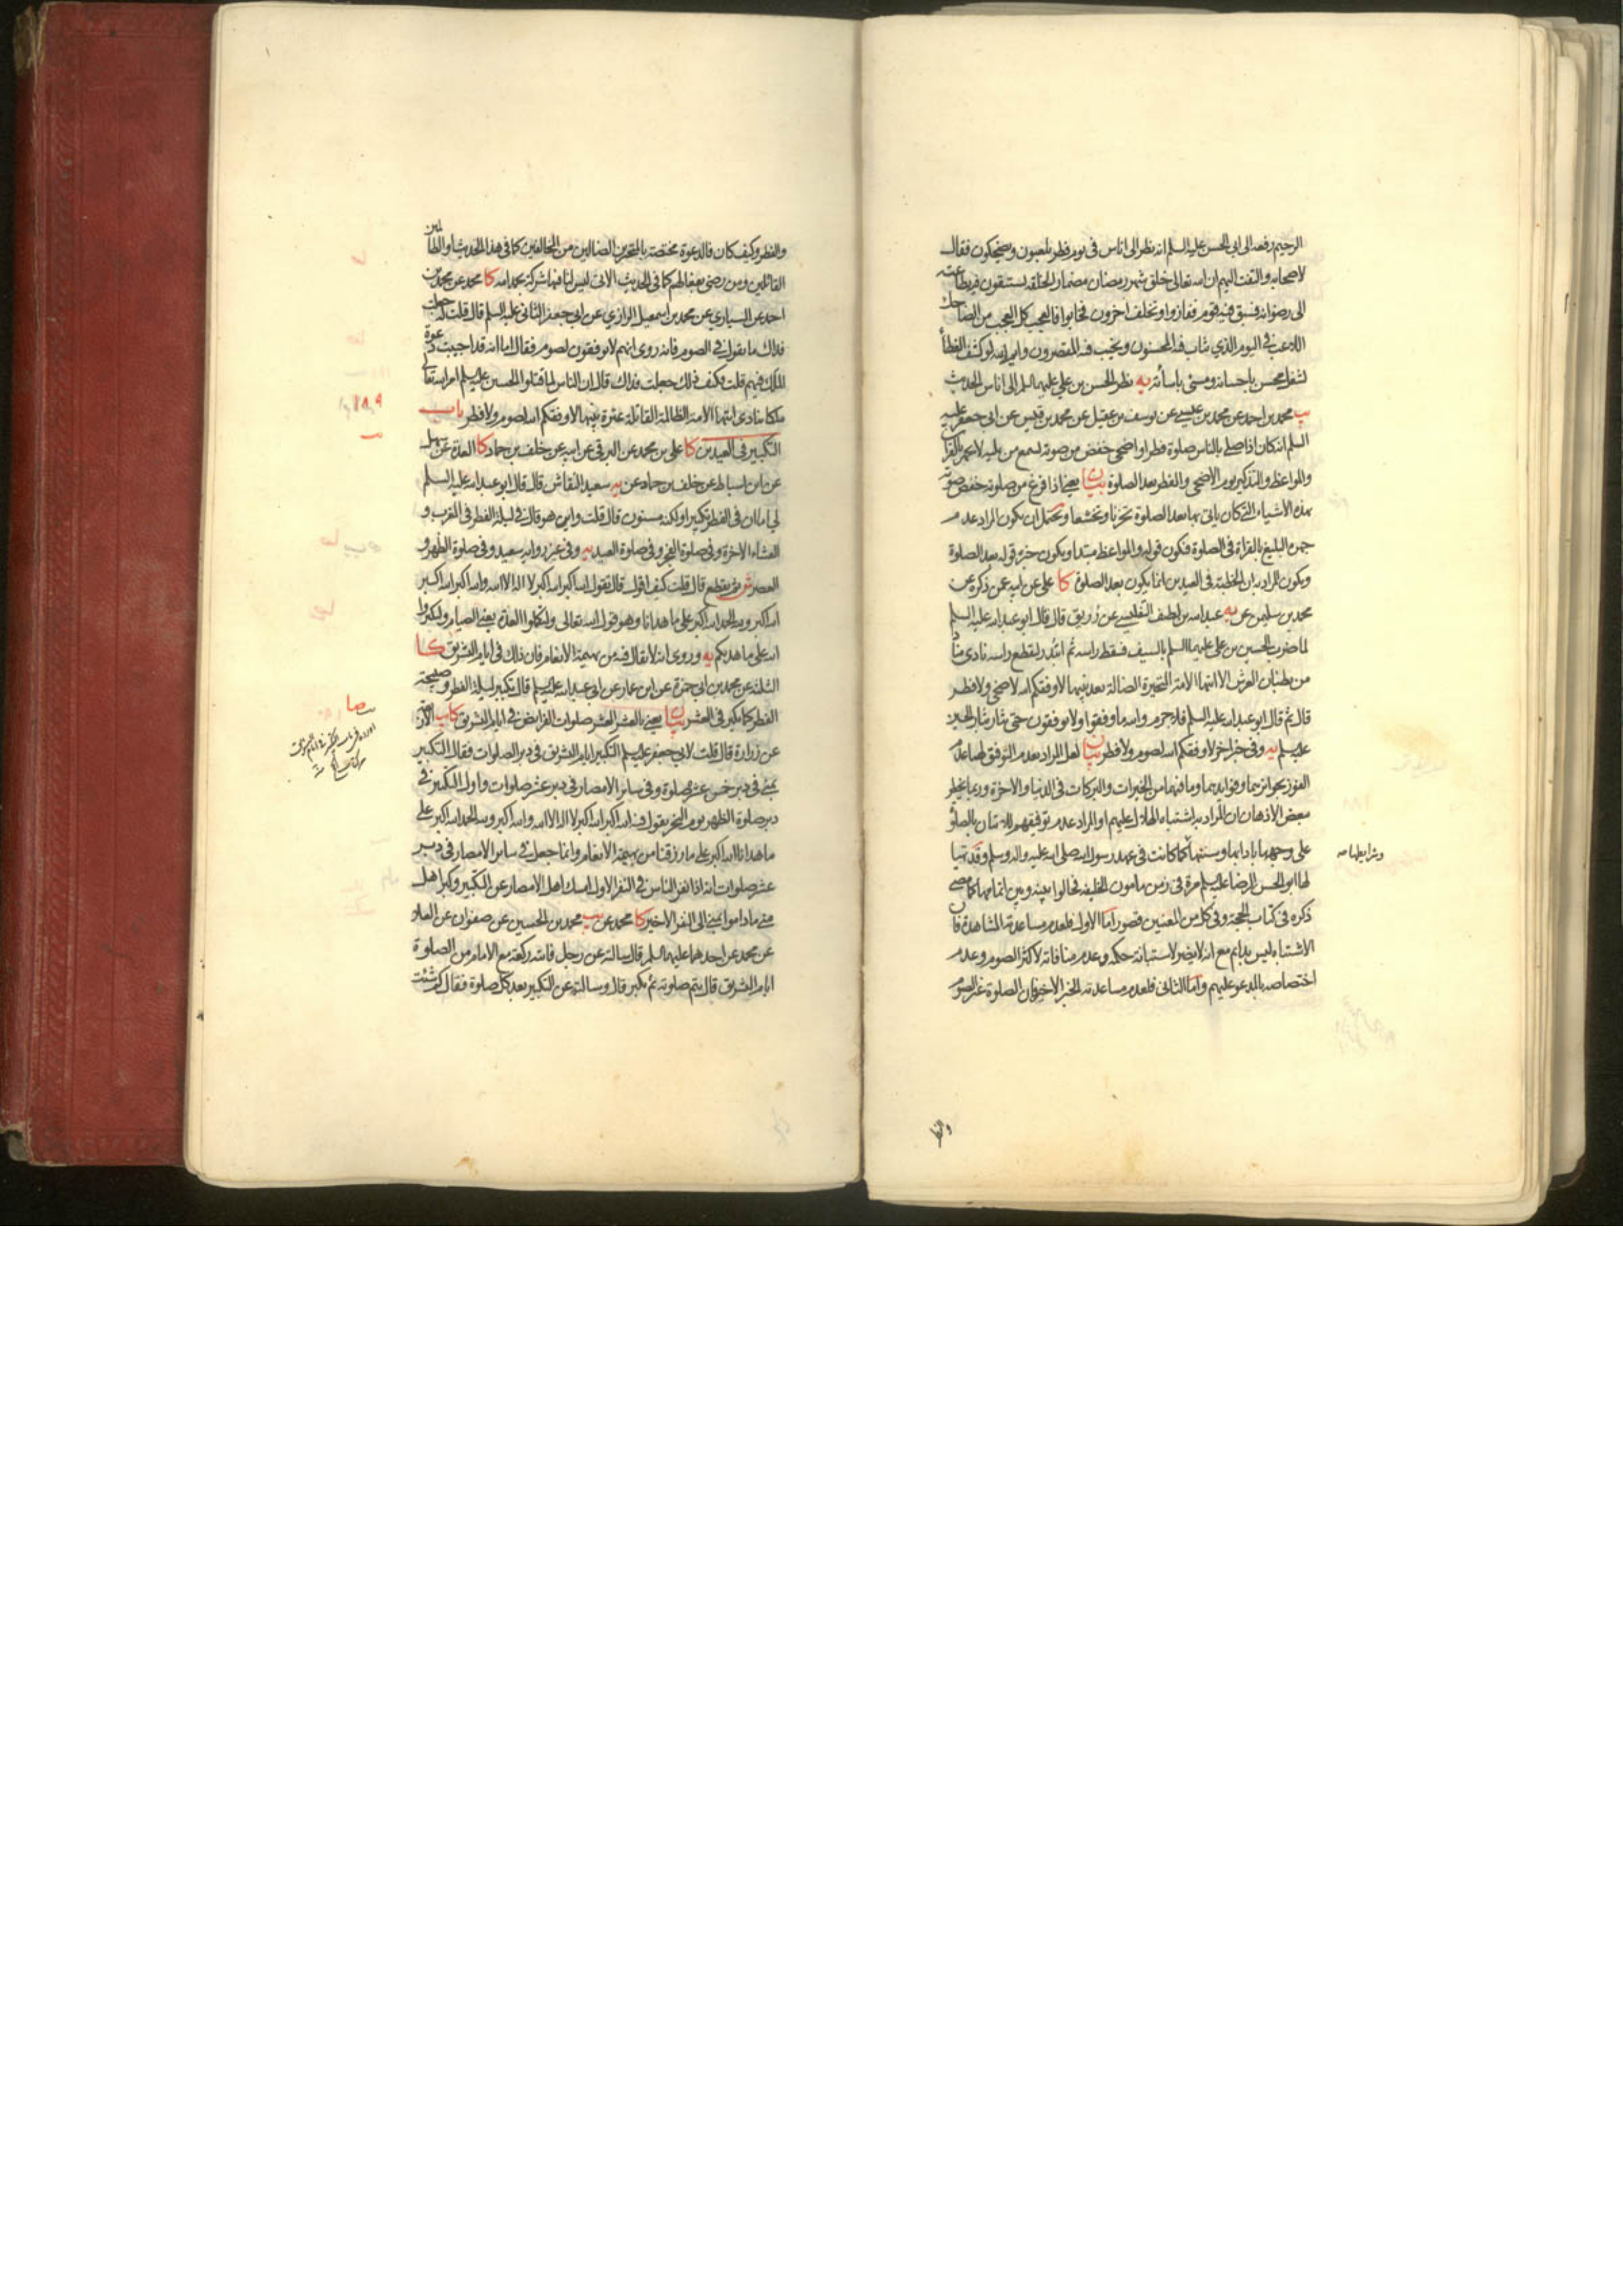 الرحيم رفعه الى ابي الحسن عليه السلم انه نظر الى اناس في يوم فطر يلعبون ويضحكون فقال
لاصحابه والتفت اليهم ان الله تعالى خلق شهر رمضان مضمارا لخلقه ليستبقون فيه بطاعته
الى رضوانه فسبق فيه قوم ففازوا وتخلف اخرون فخابوا فالعجب كل العجب من الضاحك
اللاعب في اليوم الذي يثاب فيه المحسنون ويخيب فيه المقصرون وايم الله لو كشف الغطا
لشغل محسن باحسانه ومسئ باساءته يه نظر الحسن بن علي عليهما السلم الى اناس الحديث
يب محمد بن احمد عن محمد بن عيسى عن يوسف بن عقيل عن محمد بن قيس عن ابي جعفر عليه
السلم انه كان اذا صلى بالناس صلوة فطر او اضحى خفض من صوته يسمع من يليه لا يجهر بالقران
والمواعظ والتذكير يوم الاضحى والفطر بعد الصلوة بيان يعني اذا فرغ من صلوته خفض صوته
بهذه الاشياء التي كان ياتي بها بعد الصلوة تحزنا وتخشعا ويحتمل ان يكون المراد عدم
جهره البليغ بالقراة في الصلوة فيكون قوله والمواعظ مبتدا ويكون خبره قوله بعد الصلوة
ويكون المراد به ان الخطبة في العيدين انما يكون بعد الصلوة كا علي عن ابيه عمن ذكره عن
محمد بن سليمن عن يه عبد الله بن لطيف التفليسي عن رزيق قال قال ابو عبد الله عليه السلم
لما ضرب الحسين بن علي عليهما السلم بالسيف فسقط راسه ثم ابتدر ليقطع راسه نادى مناد
من بطنان العرش الا ايتها الامة المتحيرة الضالة بعد نبيها لا وفقكم الله لاضحى ولا فطر
قال ثم قال ابو عبد الله عليه السلم فلا جرم والله ما وفقوا ولا يوفقون حتى يثار بثار الحسين
عليه السلم يه وفي خبر اخر لا وفقكم الله لصوم ولا فطر بيان لعل المراد بعدم التوفيق لهما عدم
الفوز بجوايزهما وفوايدهما وما فيهما من الخيرات والبركات في الدنيا والاخرة وربما يخطر
ببعض الاذهان ان المراد به اشتباه الهلال عليهم او المراد عدم توفيقهم للاتيان بالصلوة
على وجهها بادابها وسننها كما كانت في عهد رسول الله صلى الله عليه واله وسلم وقد تهيا
وشرايطها صح
لها ابو الحسن الرضا عليه السلم مرة في زمن مامون الخليفة فحالوا بينه وبين اتمامها كما مضى
ذكره في كتاب الحجة وفي كل من المعنيين قصور اما الاول فلعدم مساعدته المشاهدة فان
الاشتباه ليس بدايم مع انه لا يضر لاستبانة حكمه وعدم منافاته لاكثر الصوم وعدم
اختصاصه بالمدعو عليهم واما الثاني فلعدم مساعدته الخبر الاخير فان الصلوة غير الصوم
والفطر
والفطر وكيف كان فالدعوة مختصة بالمتحيرين الضالين من المخالفين كما في هذا الحديث او الظالمين
القاتلين ومن رضي بفعالهم كما في الحديث الاتي ليس لنا فيها شركة بحمد الله كا محمد عن محمد بن
احمد عن السياري عن محمد بن اسمعيل الرازي عن ابي جعفر الثاني عليه السلم قال قلت له جعلت
فداك ما تقول في الصوم فانه روى انهم لا يوفقون لصوم فقال اما انه قد اجيبت دعوة
الملك فيهم قلت وكيف ذلك جعلت فداك قال ان الناس لما قتلوا الحسين عليه السلم امر الله تعالى
ملكا ينادى ايتها الامة الظالمة القاتلة عترة نبيها لا وفقكم الله لصوم ولا فطر باب
التكبير في العيدين كا علي بن محمد عن البرقي عن ابيه عن خلف بن حماد كا العدة عن سهل
عن ابن اسباط عن خلف بن حماد عن يه سعيد النقاش قال قال ابو عبد الله عليه السلم
لي اما ان في الفطر تكبيرا ولكنه مسنون قال قلت واين هو قال في ليلة الفطر في المغرب و
العشاء الاخرة وفي صلوة الفجر وفي صلوة العيد يه وفي غير رواية سعيد وفي صلوة الظهر و
العصر ش ثم يقطع قال قلت كيف اقول قال تقول الله اكبر الله اكبر لا اله الا الله والله اكبر الله اكبر
الله اكبر ولله الحمد الله اكبر على ما هدانا وهو قول الله تعالى ولتكملوا العدة يعني الصيام ولتكبروا
الله على ما هديكم يه وروى انه لا يقال فيه من بهيمة الانعام فان ذلك في ايام التشريق كا
الثلثة عن محمد بن ابي حمزة عن ابن عمار عن ابي عبد الله عليه السلم قال تكبير ليلة الفطر وصبيحة
الفطر كما يكبر في العشر بيان يعني بالعشر العشر صلوات الفرايض في ايام التشريق كا يب الاربعة
عن زرارة قال قلت لابي جعفر عليه السلم التكبير ايام التشريق في دبر الصلوات فقال التكبير
بمنى في دبر خمس عشر صلوة وفي ساير الامصار في دبر عشر صلوات واول التكبير في
دبر صلوة الظهر يوم النحر يقول فيه الله اكبر الله اكبر لا اله الا الله والله اكبر ولله الحمد الله اكبر على
ما هدانا الله اكبر على ما رزقنا من بهيمة الانعام وانما جعل في ساير الامصار في دبر
عشر صلوات انه اذا نفر الناس في النفر الاول امسك اهل الامصار عن التكبير وكبر اهل
منى ما داموا بمنى الى النفر الاخير كا محمد عن يب محمد بن الحسين عن صفوان عن العلا
عن محمد عن احدهما عليهما السلم قال سالته عن رجل فاتته ركعة مع الامام من الصلوة
ايام التشريق قال يتم صلوته ثم يكبر قال وسالته عن التكبير بعد كل صلوة فقال كم شئت